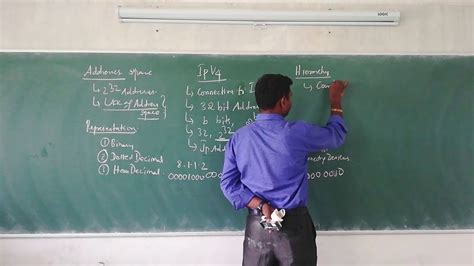 Address space
↳ 2^32 Addresses
↳ Use of Address space
Representation
① Binary
② Dotted Decimal
① HexaDecimal
IpV4
↳ Connection to I
↳ 32 bit Address
↳ b bits,
↳ 32, 2^32
↳ Ip Add
8.1.1.2
00001000 0000
Hierarchy
↳ Con
000 0010